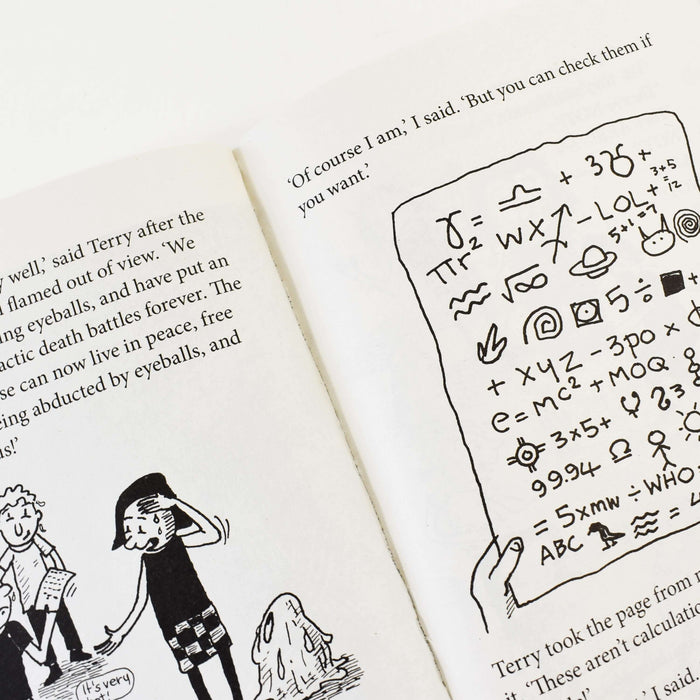 y well,' said Terry after the
flamed out of view. 'We
ing eyeballs, and have put an
actic death battles forever. The
se can now live in peace, free
eing abducted by eyeballs, and
us!'
It's very
hot!
'Of course I am,' I said. 'But you can check them if
you want.'
ɣ= ♎ + 3♉ +
3+5
=
12
πr² wx -LOL+
5+1=7
√∞
5÷■+
+ xyz - 3po x
e=mc² + MOQ
3x5+
99.94 Ω
= 5xmw ÷ WHO
ABC = =
Terry took the page from
it. 'These aren't calculatio
I said